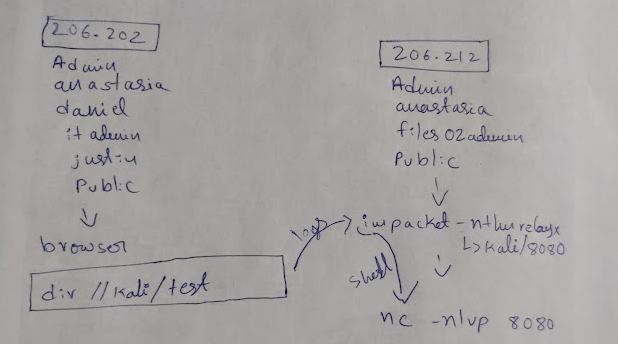 206.202
Admin
anastasia
daniel
it admin
justin
Public
browser
dir //kali/test
206.212
Admin
anastasia
files02admin
Public
loop
impacket - ntlmrelayx
kali/8080
shell
nc -nlvp 8080